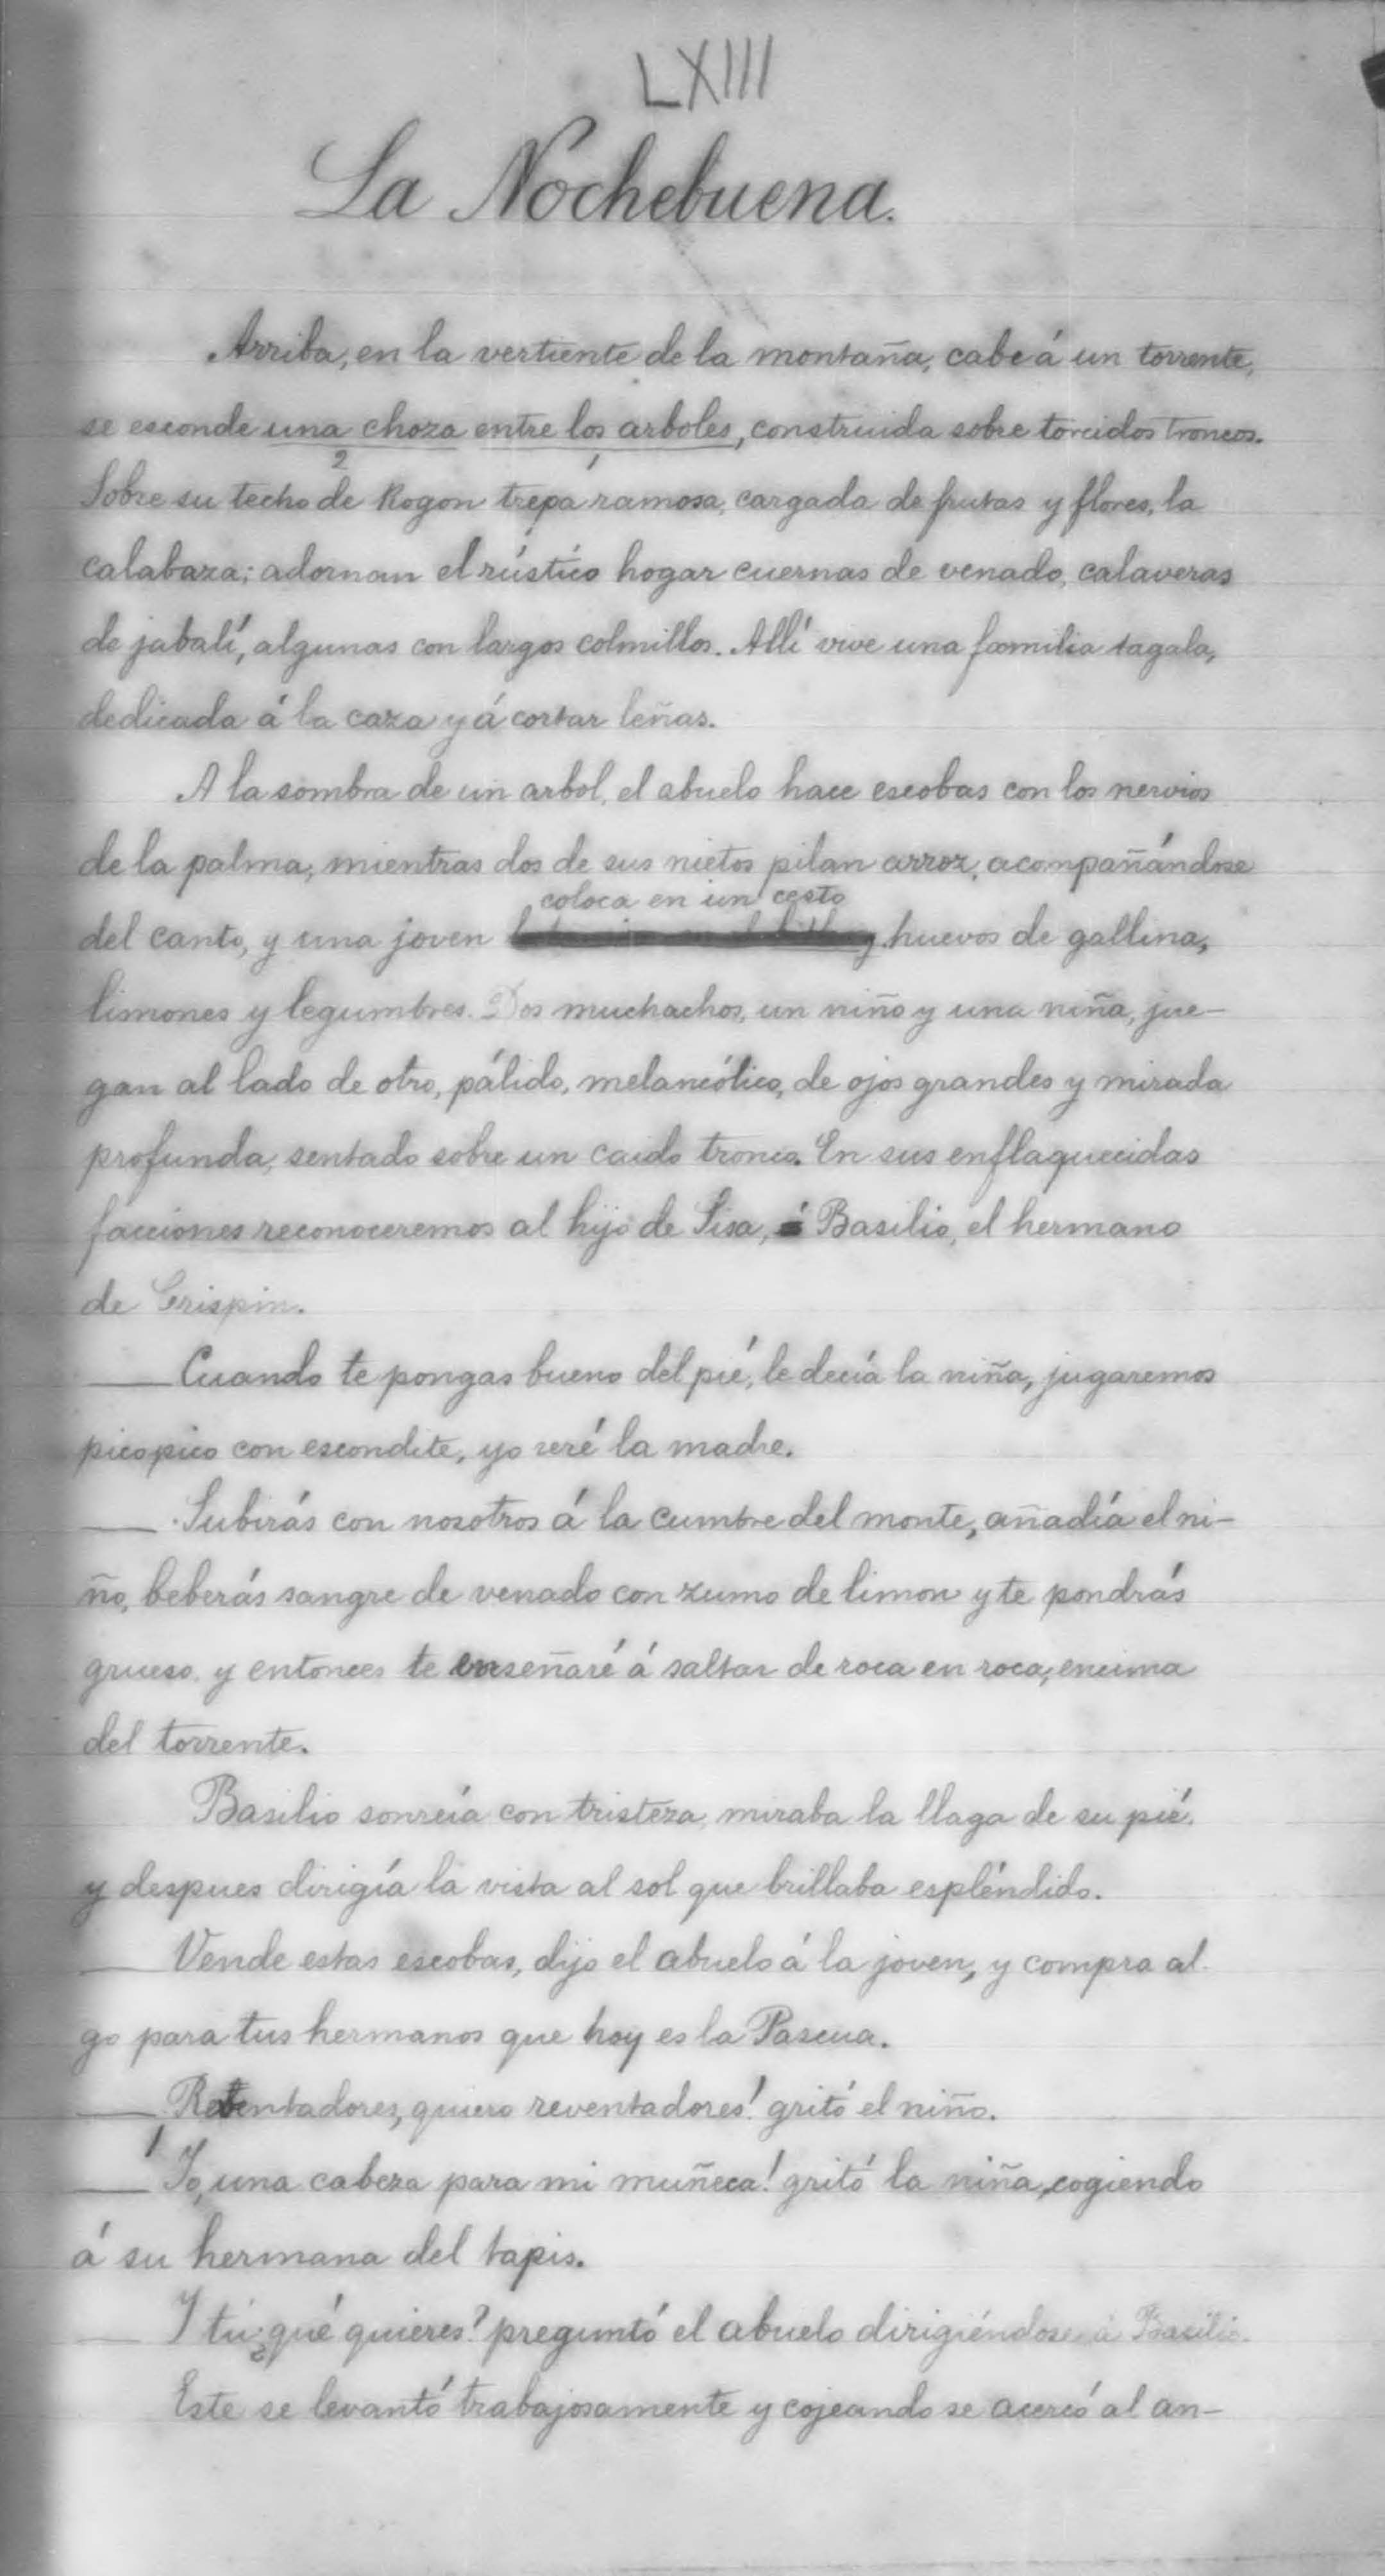 LXIII
La Nochebuena.
Arriba, en la vertiente de la montaña, cabe á un torrente,
se esconde una choza entre los arboles, construida sobre torcidos troncos.
2 1
Sobre su techo de Kogon trepa ramosa, cargada de frutas y flores, la
calabaza; adornan el rústico hogar cuernas de venado, calaveras
de jabalí, algunas con largos colmillos. Allí vive una familia tagala,
dedicada á la caza y á cortar leñas.
A la sombra de un arbol, el abuelo hace escobas con los nervios
de la palma, mientras dos de sus nietos pilan arroz, acompañándose
coloca en un cesto
del canto, y una joven huevos de gallina,
limones y legumbres. Dos muchachos, un niño y una niña, jue-
gan al lado de otro, pálido, melancólico, de ojos grandes y mirada
profunda, sentado sobre un caido tronco. En sus enflaquecidas
facciones reconoceremos al hijo de Sisa, á Basilio, el hermano
de Crispin.
— Cuando te pongas bueno del pié, le decía la niña, jugaremos
picopico con escondite, yo seré la madre.
— Subirás con nosotros á la cumbre del monte, añadía el ni-
ño, beberás sangre de venado con zumo de limon y te pondrás
grueso, y entonces te enseñaré á saltar de roca en roca, encima
del torrente.
Basilio sonreía con tristeza, miraba la llaga de su pié,
y despues dirigía la vista al sol que brillaba espléndido.
— Vende estas escobas, dijo el abuelo á la joven, y compra al-
go para tus hermanos que hoy es la Pascua.
— Reventadores, quiero reventadores! gritó el niño.
— Yo, una cabeza para mi muñeca! gritó la niña, cogiendo
á su hermana del tapis.
— Y tú ¿qué quieres? preguntó el abuelo dirigiéndose á Basilio.
Este se levantó trabajosamente y cojeando se acercó al an-